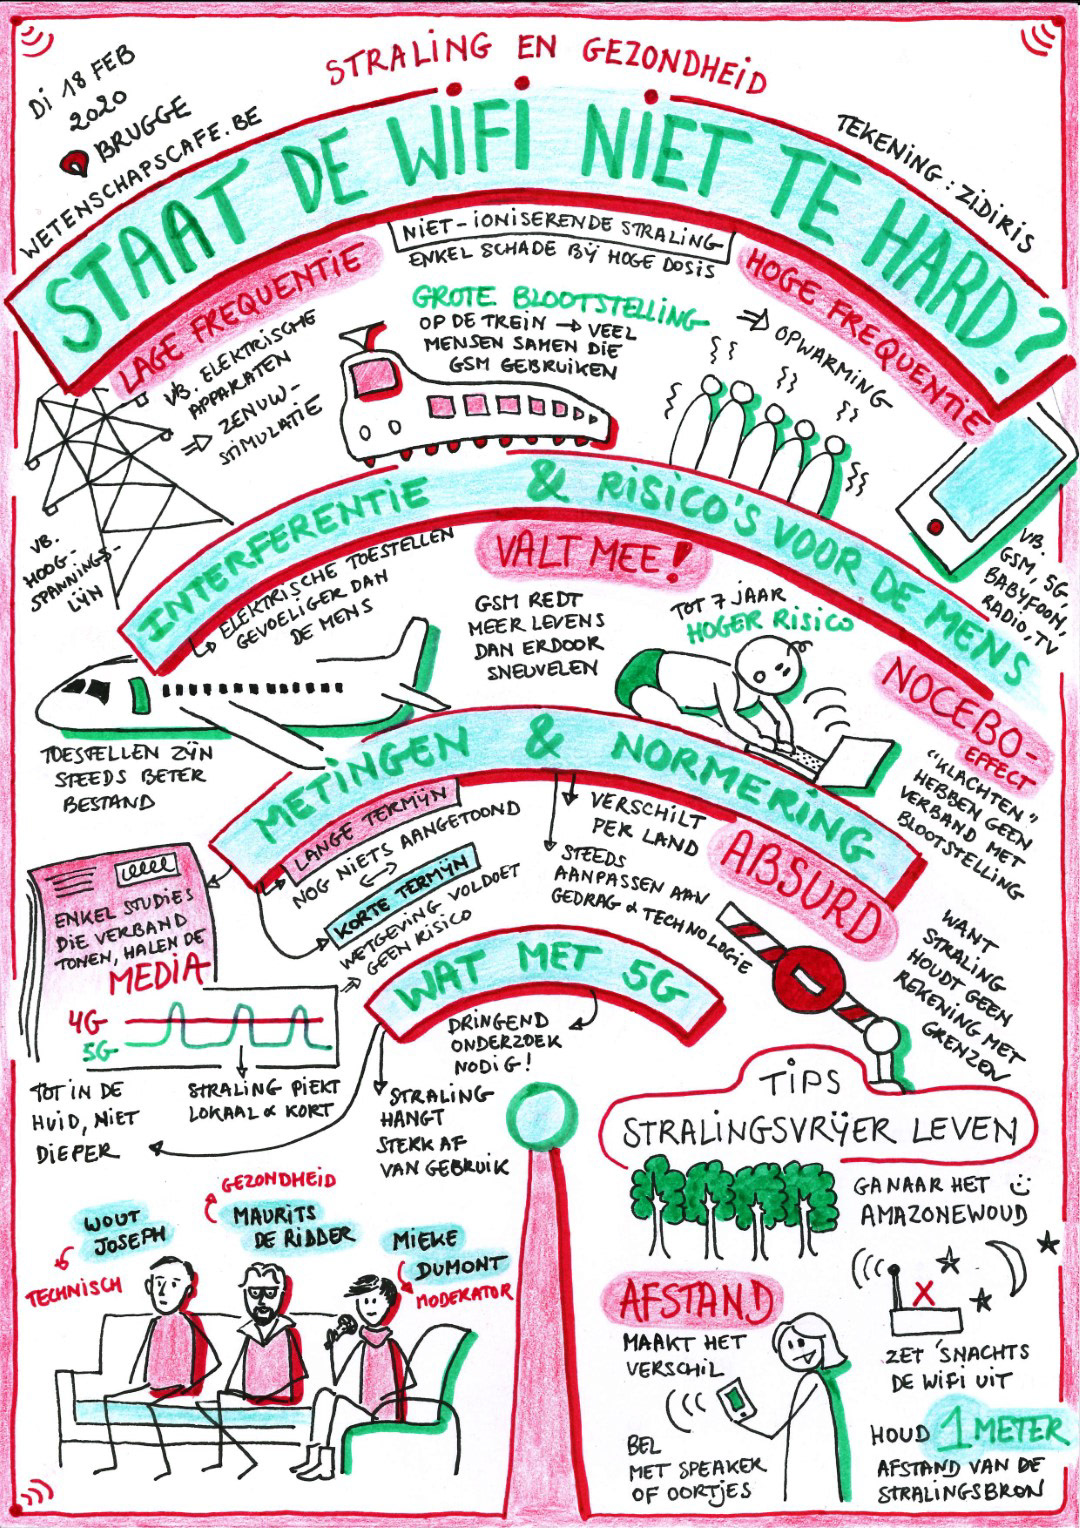 STRALING EN GEZONDHEID
DI 18 FEB
2020
BRUGGE
WETENSCHAPSCAFE.BE
TEKENING: ZIDIRIS
STAAT DE WIFI NIET TE HARD?
NIET-IONISERENDE STRALING
ENKEL SCHADE BIJ HOGE DOSIS
LAGE FREQUENTIE
VB. ELEKTRISCHE
APPARATEN
⇒ ZENUW-
STIMULATIE
VB.
HOOG-
SPANNINGS-
LIJN
GROTE BLOOTSTELLING
OP DE TREIN → VEEL
MENSEN SAMEN DIE
GSM GEBRUIKEN
HOGE FREQUENTIE
⇒ OPWARMING
VB.
GSM, 5G,
BABYFOON,
RADIO, TV
INTERFERENTIE & RISICO'S VOOR DE MENS
ELEKTRISCHE TOESTELLEN
GEVOELIGER DAN
DE MENS
TOESTELLEN ZIJN
STEEDS BETER
BESTAND
VALT MEE!
GSM REDT
MEER LEVENS
DAN ERDOOR
SNEUVELEN
TOT 7 JAAR
HOGER RISICO
NOCEBO-
EFFECT
"KLACHTEN"
HEBBEN GEEN
VERBAND MET
BLOOTSTELLING
METINGEN & NORMERING
LANGE TERMIJN
NOG NIETS AANGETOOND
KORTE TERMIJN
WETGEVING VOLDOET
⇒ GEEN RISICO
ENKEL STUDIES
DIE VERBAND
TONEN, HALEN DE
MEDIA
VERSCHILT
PER LAND
STEEDS
AANPASSEN AAN
GEDRAG & TECHNOLOGIE
ABSURD
WANT
STRALING
HOUDT GEEN
REKENING MET
GRENZEN
WAT MET 5G
DRINGEND
ONDERZOEK
NODIG!
4G
5G
STRALING PIEKT
LOKAAL & KORT
TOT IN DE
HUID, NIET
DIEPER
STRALING
HANGT
STERK AF
VAN GEBRUIK
TIPS
STRALINGSVRIJER LEVEN
GA NAAR HET
AMAZONEWOUD
AFSTAND
MAAKT HET
VERSCHIL
BEL
MET SPEAKER
OF OORTJES
X
ZET 'SNACHTS
DE WIFI UIT
HOUD 1 METER
AFSTAND VAN DE
STRALINGSBRON
WOUT
JOSEPH
TECHNISCH
GEZONDHEID
MAURITS
DE RIDDER
MIEKE
DUMONT
MODERATOR